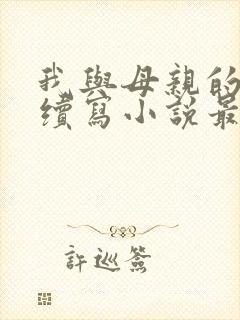 我與母親的
續寫小說最
許巡簽